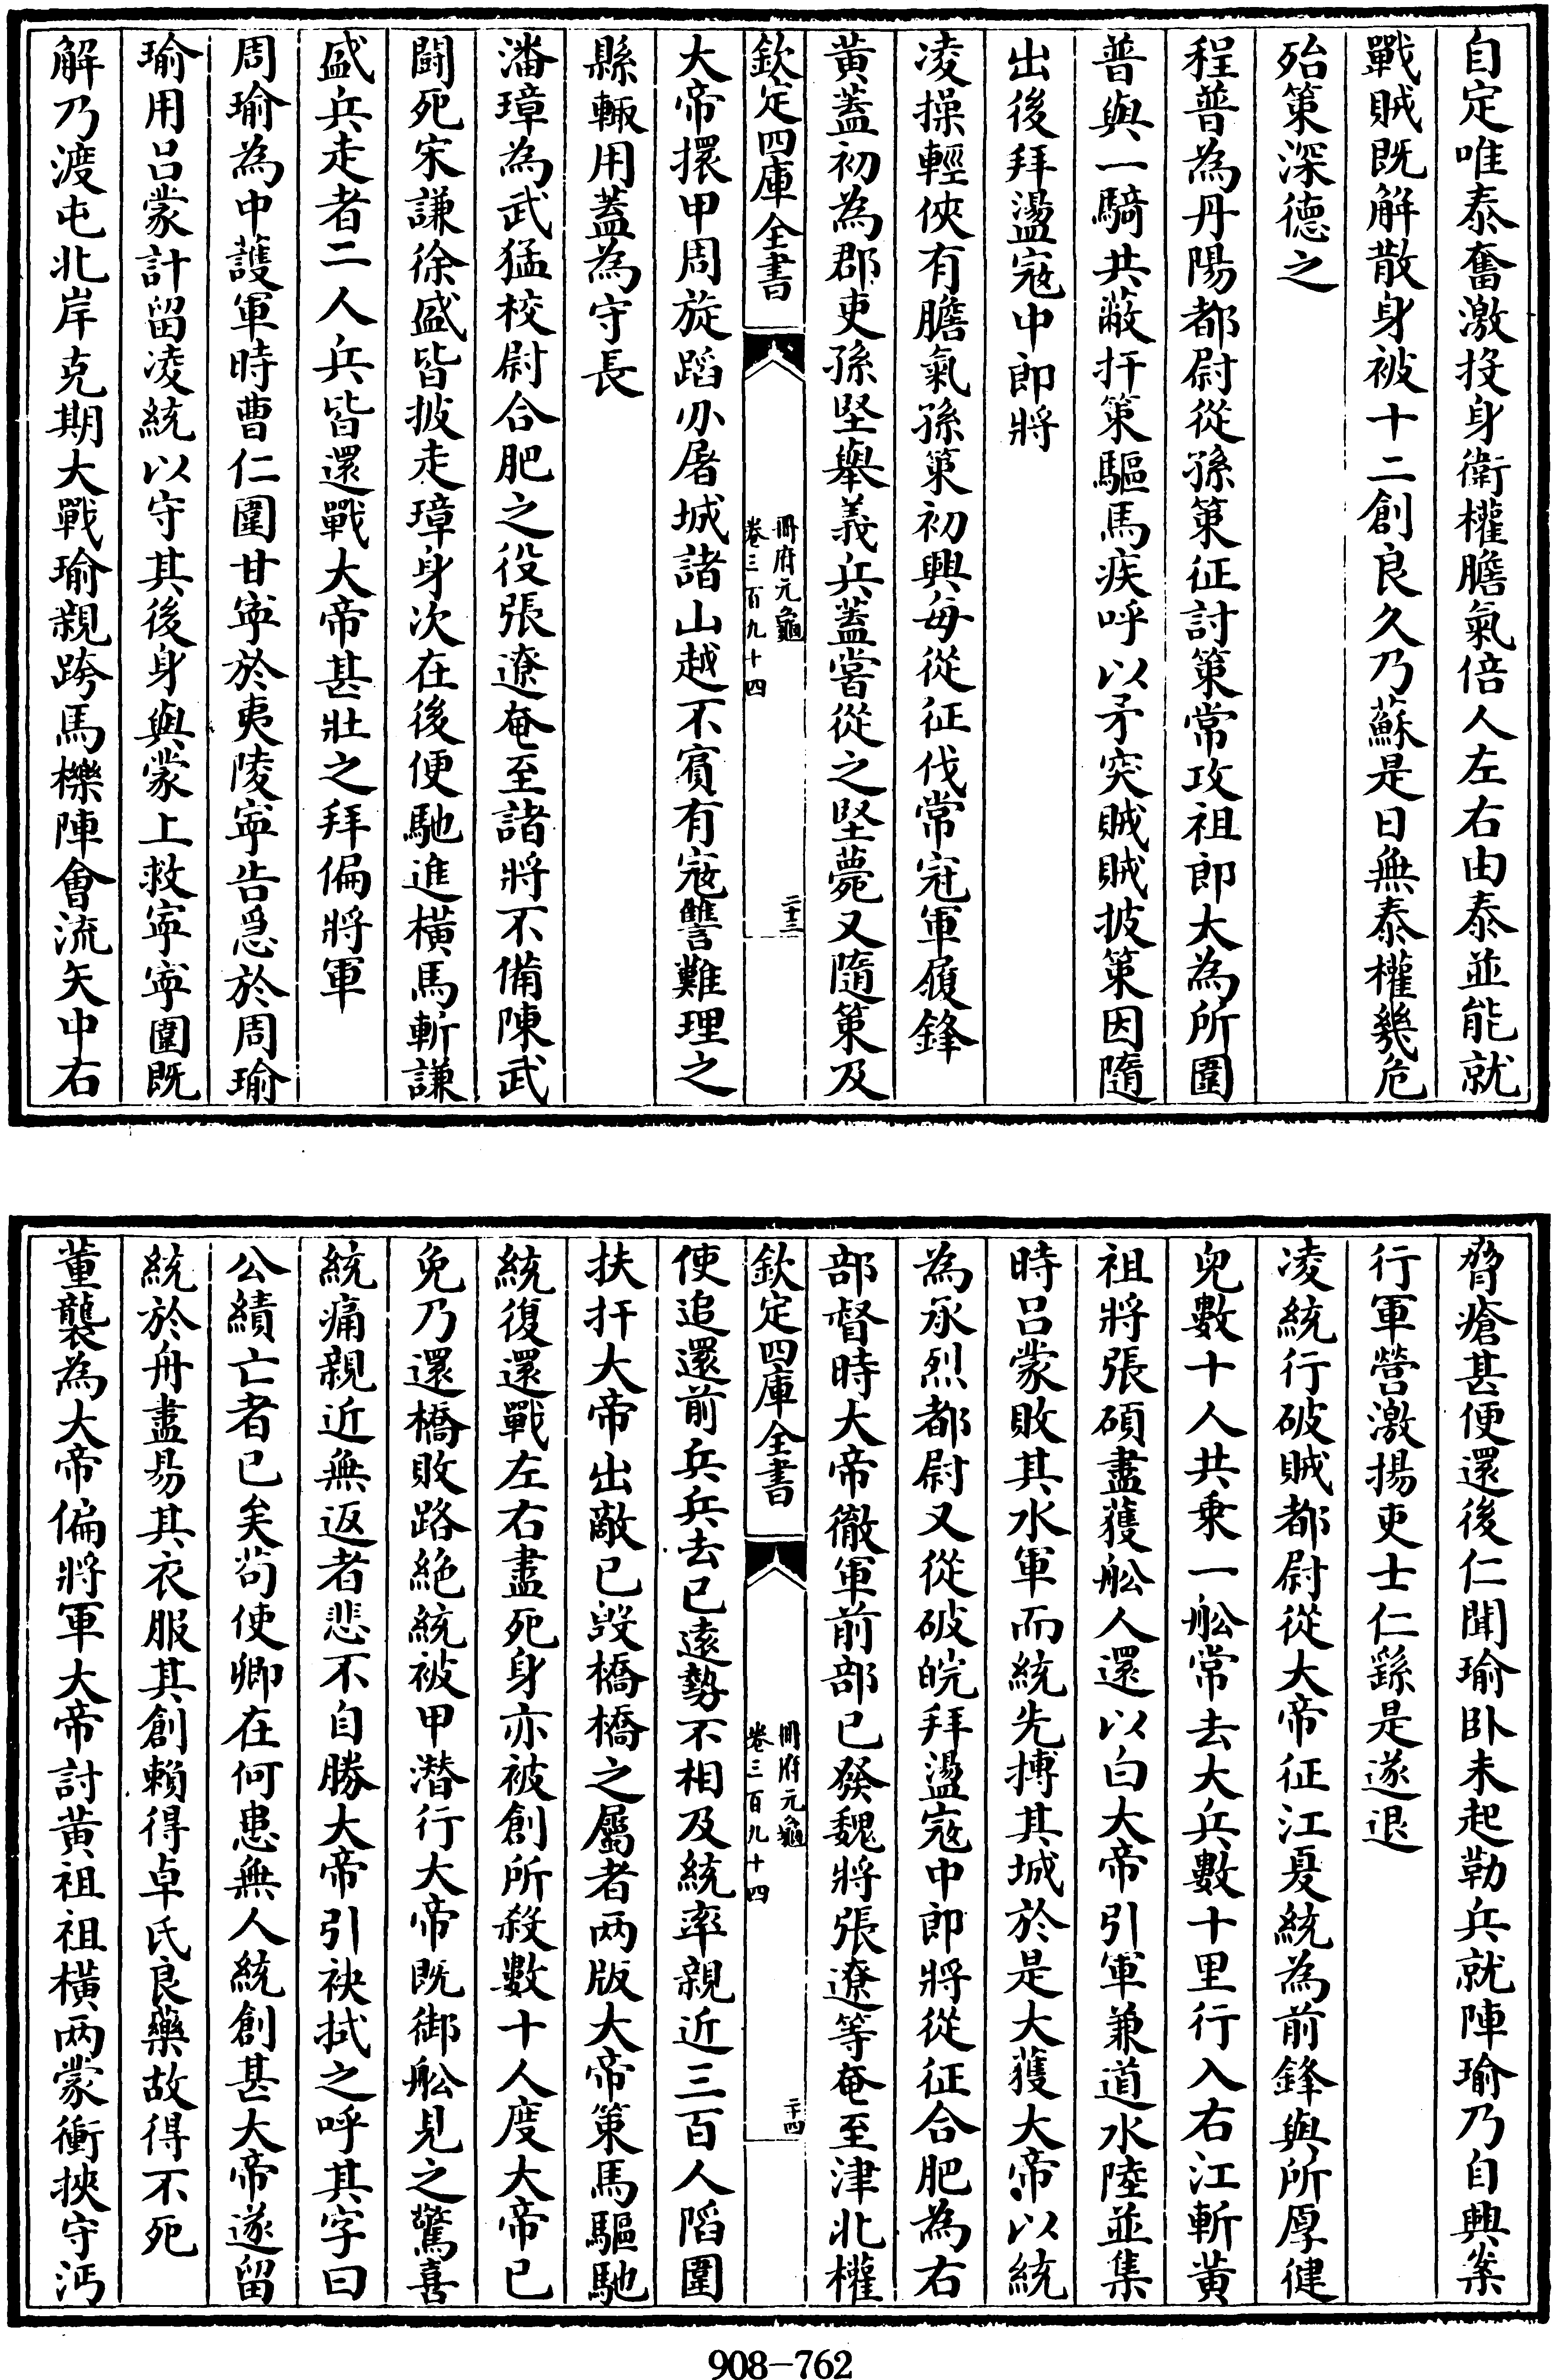 自定唯泰奮激投身衛權膽氣倍人左右由泰並能就
戰賊既解散身被十二創良久乃蘇是日無泰權幾危
殆策深德之
程普為丹陽都尉從孫策征討策常攻祖郎大為所圍
普與一騎共蔽扞策驅馬疾呼以矛突賊賊披策因隨
出後拜盪寇中郎將
凌操輕俠有膽氣孫策初興每從征伐常冠軍履鋒
黃蓋初為郡吏孫堅舉義兵蓋嘗從之堅薨又隨策及
欽定四庫全書
冊府元龜
卷三百九十四
二十三
大帝擐甲周旋蹈刃屠城諸山越不賓有寇讐難理之
縣輒用蓋為守長
潘璋為武猛校尉合肥之役張遼奄至諸將不備陳武
鬬死宋謙徐盛皆披走璋身次在後便馳進橫馬斬謙
盛兵走者二人兵皆還戰大帝甚壯之拜偏將軍
周瑜為中護軍時曹仁圍甘寧於夷陵寧告急於周瑜
瑜用呂蒙計留凌統以守其後身與蒙上救寧寧圍既
解乃渡屯北岸克期大戰瑜親跨馬櫟陣會流矢中右
脅瘡甚便還後仁聞瑜臥未起勒兵就陣瑜乃自興案
行軍營激揚吏士仁繇是遂退
凌統行破賊都尉從大帝征江夏統為前鋒與所厚健
兒數十人共乘一舩常去大兵數十里行入右江斬黃
祖將張碩盡獲舩人還以白大帝引軍兼道水陸並集
時呂蒙敗其水軍而統先搏其城於是大獲大帝以統
為承烈都尉又從破皖拜盪寇中郎將從征合肥為右
部督時大帝徹軍前部已發魏將張遼等奄至津北權
欽定四庫全書
冊府元龜
卷三百九十四
二十四
使追還前兵兵去已遠勢不相及統率親近三百人陷圍
扶扞大帝出敵已毀橋橋之屬者两版大帝策馬驅馳
統復還戰左右盡死身亦被創所殺數十人度大帝已
免乃還橋敗路絶統被甲潛行大帝既御舩見之驚喜
統痛親近無返者悲不自勝大帝引袂拭之呼其字曰
公績亡者已矣苟使卿在何患無人統創甚大帝遂留
統於舟盡易其衣服其創賴得卓氏良藥故得不死
董襲為大帝偏將軍大帝討黃祖祖橫两蒙衝挾守沔
908-762